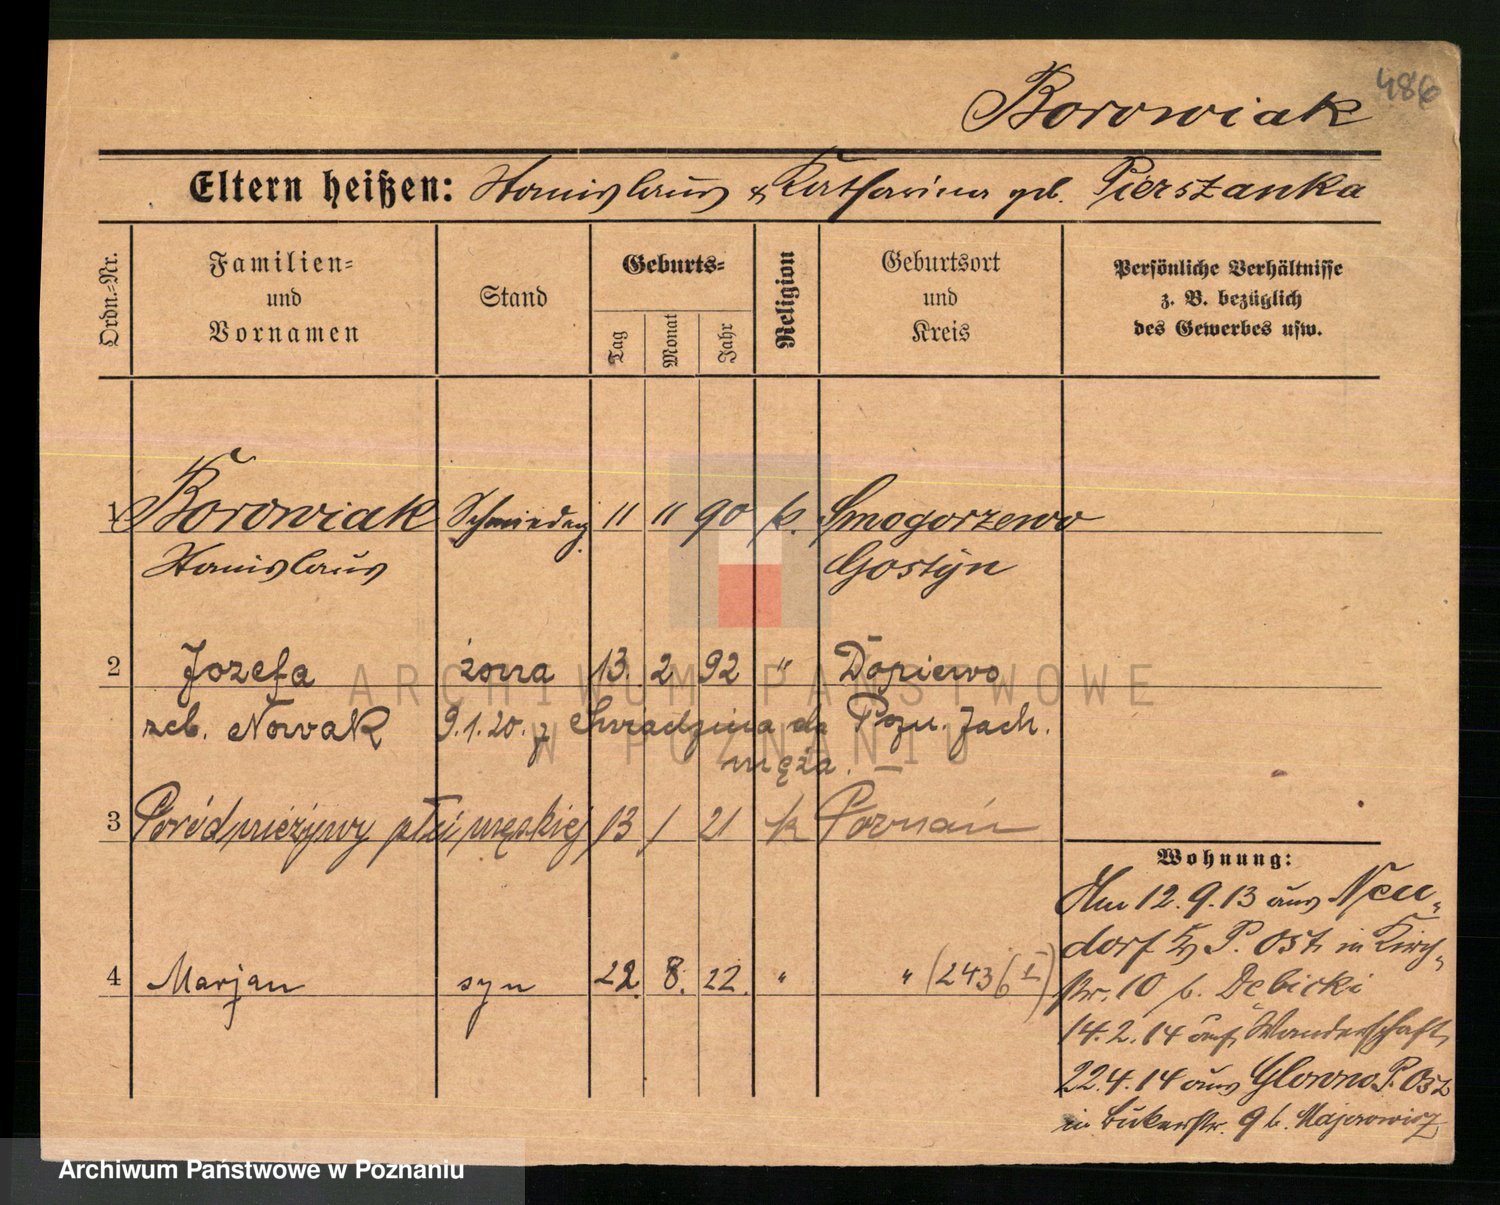 486
Borowiak
Eltern heißen: Stanislaus & Katharina geb. Pierszanka
Ordn.=Nr.
Familien=
und
Vornamen
Stand
Geburts=
Tag
Monat
Jahr
Religion
Geburtsort
und
Kreis
Persönliche Verhältnisse
z. B. bezüglich
des Gewerbes usw.
1 Borowiak Schmiedeg. 11 11 90 k. Smogorzewo
Stanislaus Gostyn
2 Jozefa żona 13. 2 92 " Dopiewo
zeb. Nowak 9.1.20. z da Pozn. Zach.
męża. —
3 Poród nieżywy płci męskiej 13 1 21 k Poznań
4 Marjan syn 22. 8. 22. " " (243/6 I)
Wohnung:
12.9.13 aus Neu-
dorf Kr P. Ost in Kirch-
str. 10 b. Debicki
14.2.14 auf Wanderschaft
22.4.14 aus Glowno P. Ost
in Bukerstr. 9 b. Majerowicz
ARCHIWUM PAŃSTWOWE
W POZNANIU
Archiwum Państwowe w Poznaniu